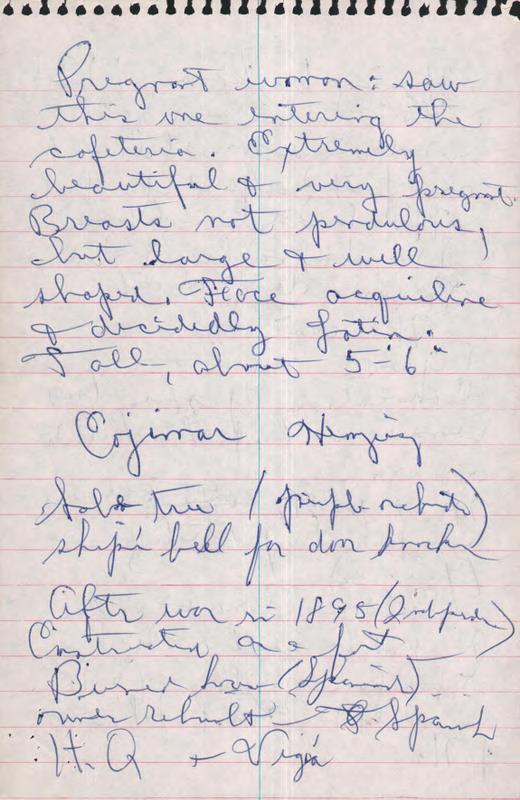 Pregnant woman: saw
this one entering the
cafeteria. Extremely
beautiful & very pregnant.
Breasts not pendulous,
but large & well
shaped. Face acquiline
& decidedly Latin.
Tall, about 5-6"
Cojimar
tree (
ship's bell for door knocker
After war in 1895 (Independ)
Constructed as a fort
Burned house (Spanish)
owner rebuilt - Spanish
H.Q + Vigía